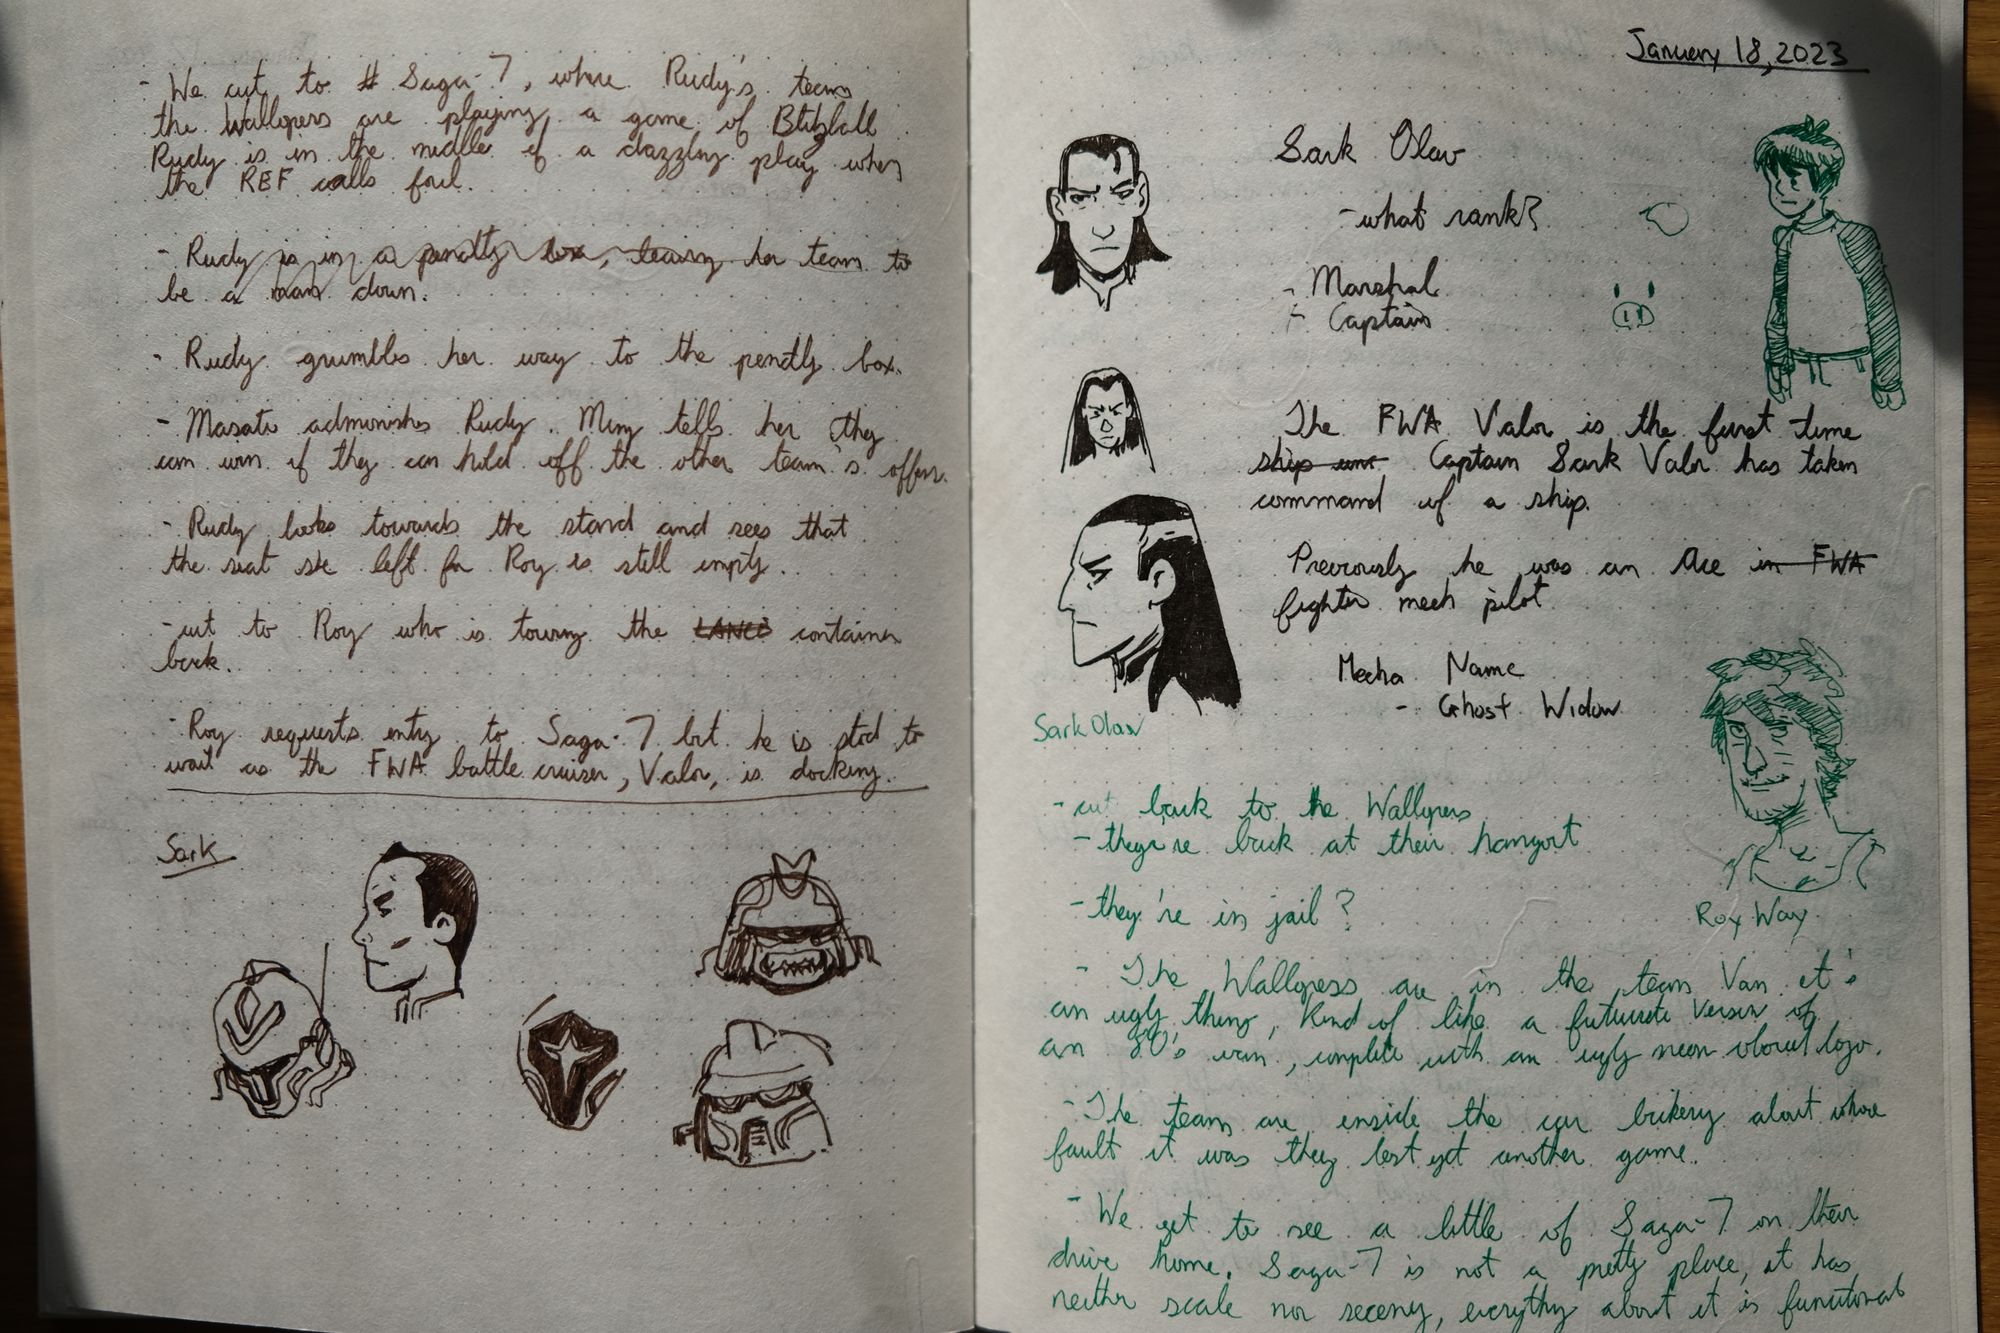 - We cut to # Saga-7, where Rudy's team
the Wallopers are playing a game of Blitzball
Rudy is in the middle of a dazzling play when
the REF calls foul.
- Rudy is in a penalty box, leaving her team to
be a man down.
- Rudy grumbles her way to the penalty box.
- Masato admonishes Rudy. Ming tells her they
can win if they can hold off the other team's offens.
- Rudy looks towards the stand and sees that
the seat she left for Roy is still empty.
- cut to Roy who is touring the LANCE container
back.
- Roy requests entry to Saga-7 but he is stod to
wait as the FWA battle cruiser, Valor, is docking.
Sark
January 18, 2023
Sark Olav
- what rank?
- Marshal
- Captain
The FWA Valor is the first time
ship Captain Sark Valor has taken
command of a ship.
Previously he was an Ace in FWA
fighter mech pilot
Mecha Name
- Ghost Widow
Sark Olav
- cut back to the Wallopers
- they're back at their hangout
- they're in jail?
Roy Way
- The Wallopers are in the team Van it's
an ugly thing, kind of like a futuristic version of
an 80's van, complete with an ugly neon colored logo.
- The team are inside the car bickering about whose
fault it was they lost yet another game.
- We get to see a little of Saga-7 on their
drive home. Saga-7 is not a pretty place, it has
neither scale nor scenery, everything about it is functional